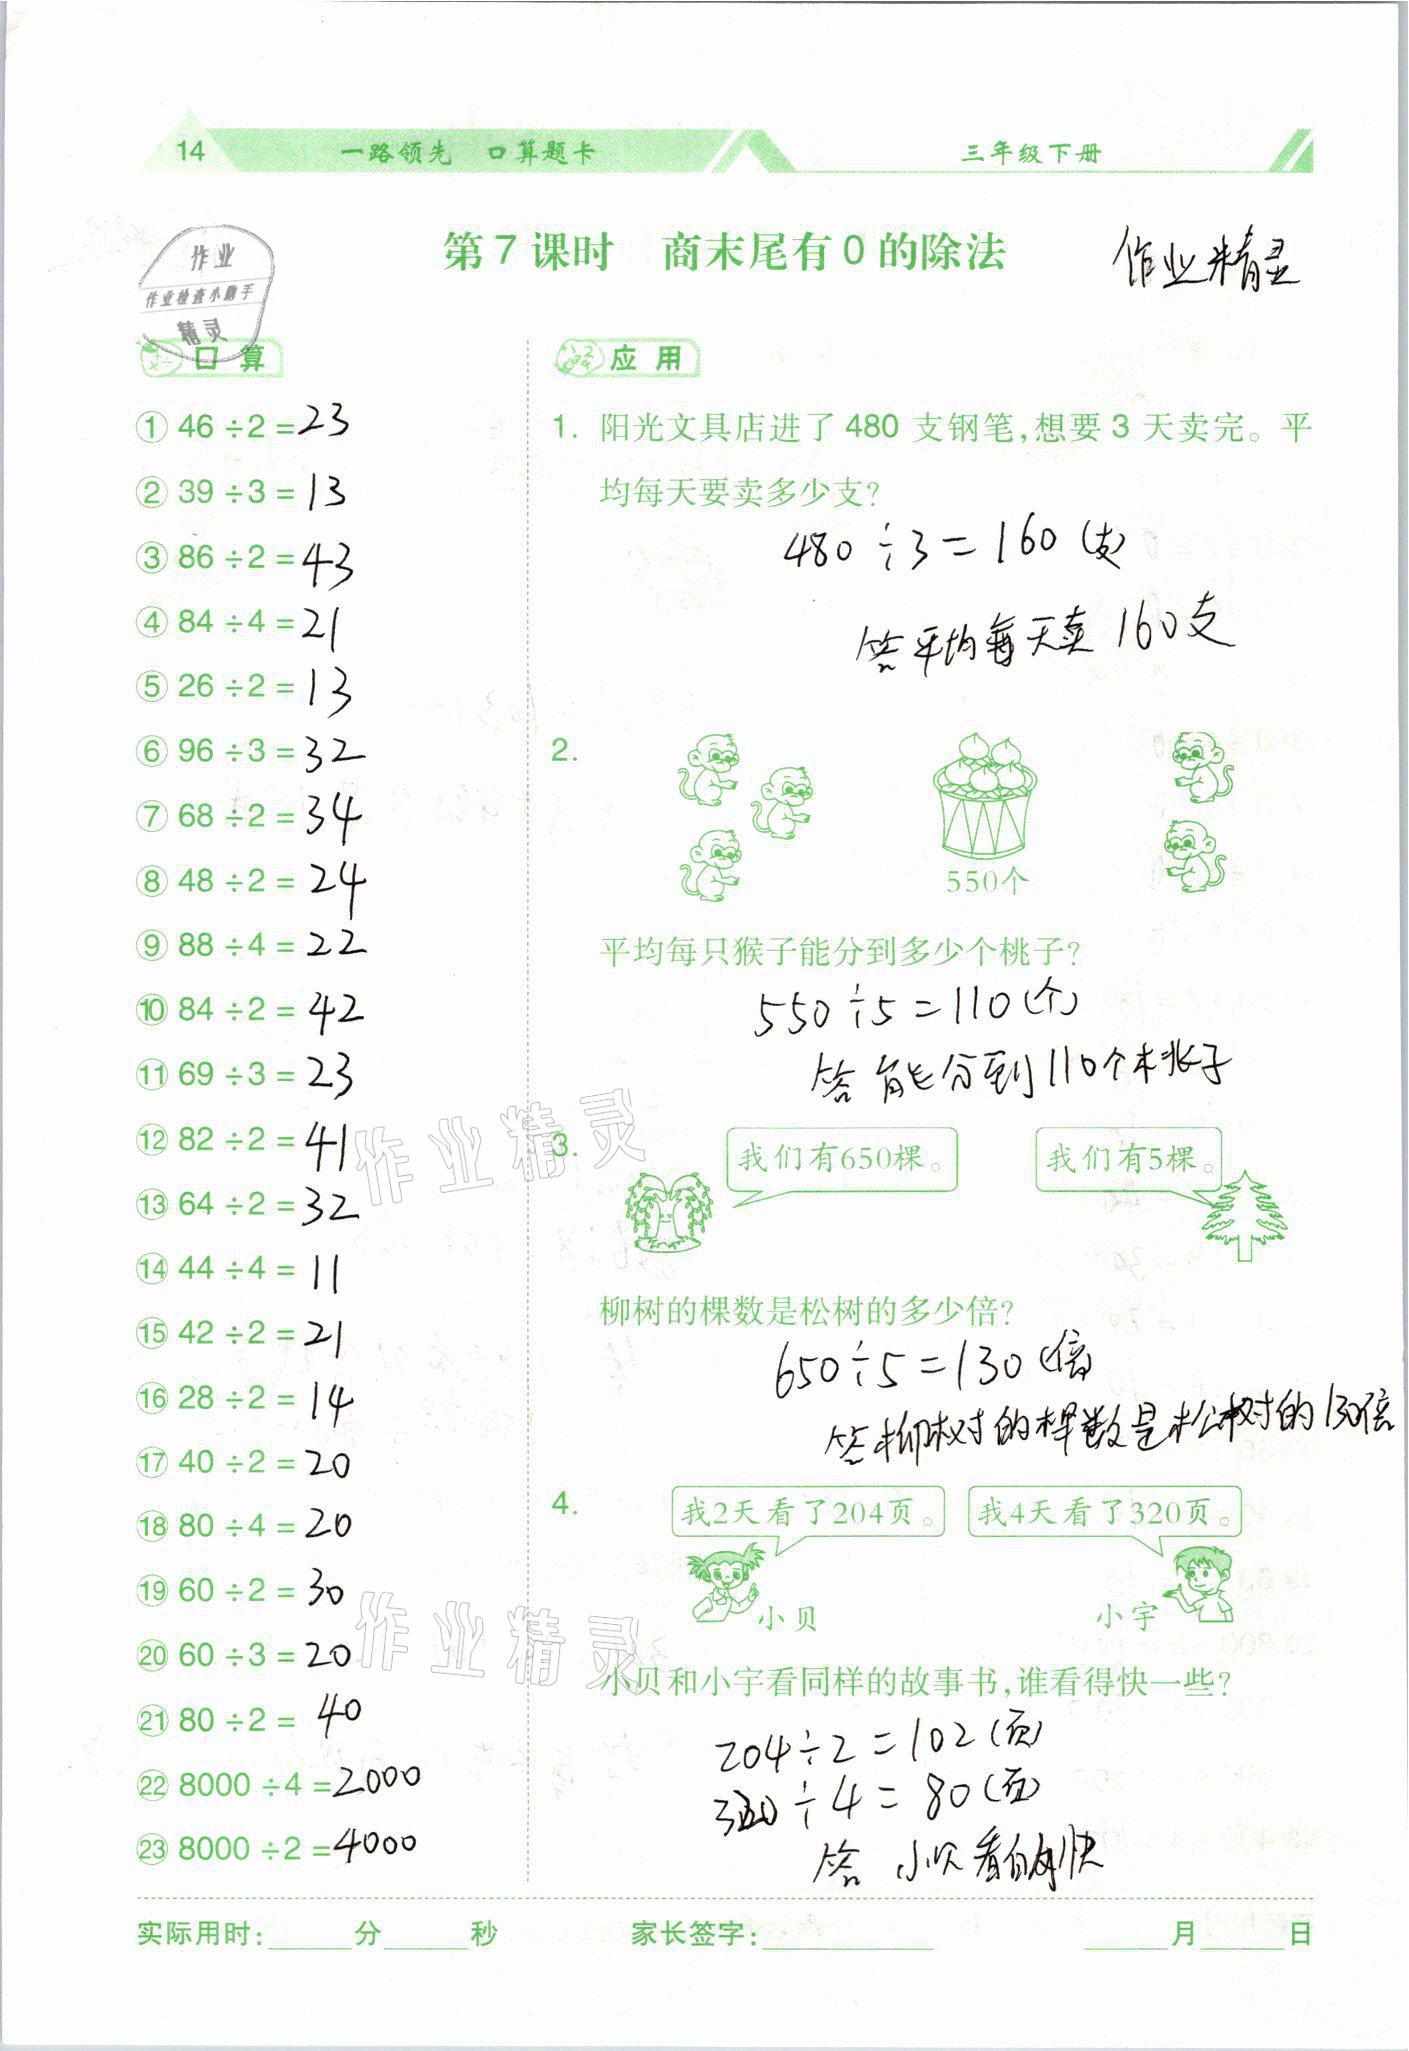 14 一路领先 口算题卡 三年级下册
第7课时 商末尾有0的除法
作业精灵
作业
作业检查小助手
精灵
口算
① 46÷2=23
② 39÷3=13
③ 86÷2=43
④ 84÷4=21
⑤ 26÷2=13
⑥ 96÷3=32
⑦ 68÷2=34
⑧ 48÷2=24
⑨ 88÷4=22
⑩ 84÷2=42
⑪ 69÷3=23
⑫ 82÷2=41
⑬ 64÷2=32
⑭ 44÷4=11
⑮ 42÷2=21
⑯ 28÷2=14
⑰ 40÷2=20
⑱ 80÷4=20
⑲ 60÷2=30
⑳ 60÷3=20
㉑ 80÷2=40
㉒ 8000÷4=2000
㉓ 8000÷2=4000
应用
1. 阳光文具店进了480支钢笔,想要3天卖完。平
均每天要卖多少支?
480÷3=160(支)
答平均每天卖160支
2.
550个
平均每只猴子能分到多少个桃子?
550÷5=110(个)
答能分到110个桃子
3. 我们有650棵。 我们有5棵。
柳树的棵数是松树的多少倍?
650÷5=130(倍)
答柳树的棵数是松树的130倍
4. 我2天看了204页。 我4天看了320页。
小贝 小宇
小贝和小宇看同样的故事书,谁看得快一些?
204÷2=102(页)
320÷4=80(页)
答 小贝看的快
作业精灵
作业精灵
实际用时:____分____秒 家长签字:________ ____月____日